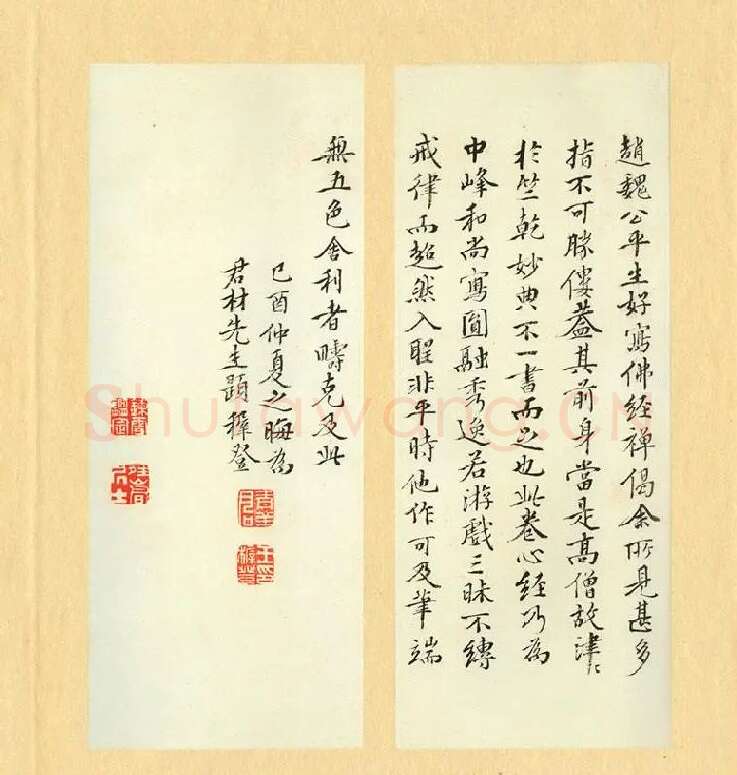 趙魏公平生好寫佛經禅偈余所見甚多
指不可勝僂蓋其前身當是高僧故津〻
於竺乾妙典不一書而足也此卷心經乃為
中峰和尚寫圓融秀逸若游戲三昧不縛
戒律而超然入聖非平時他作可及筆端
無五色舍利者疇克及此
己酉仲夏之晦為
君材先生題穉登
Shufawang.CN